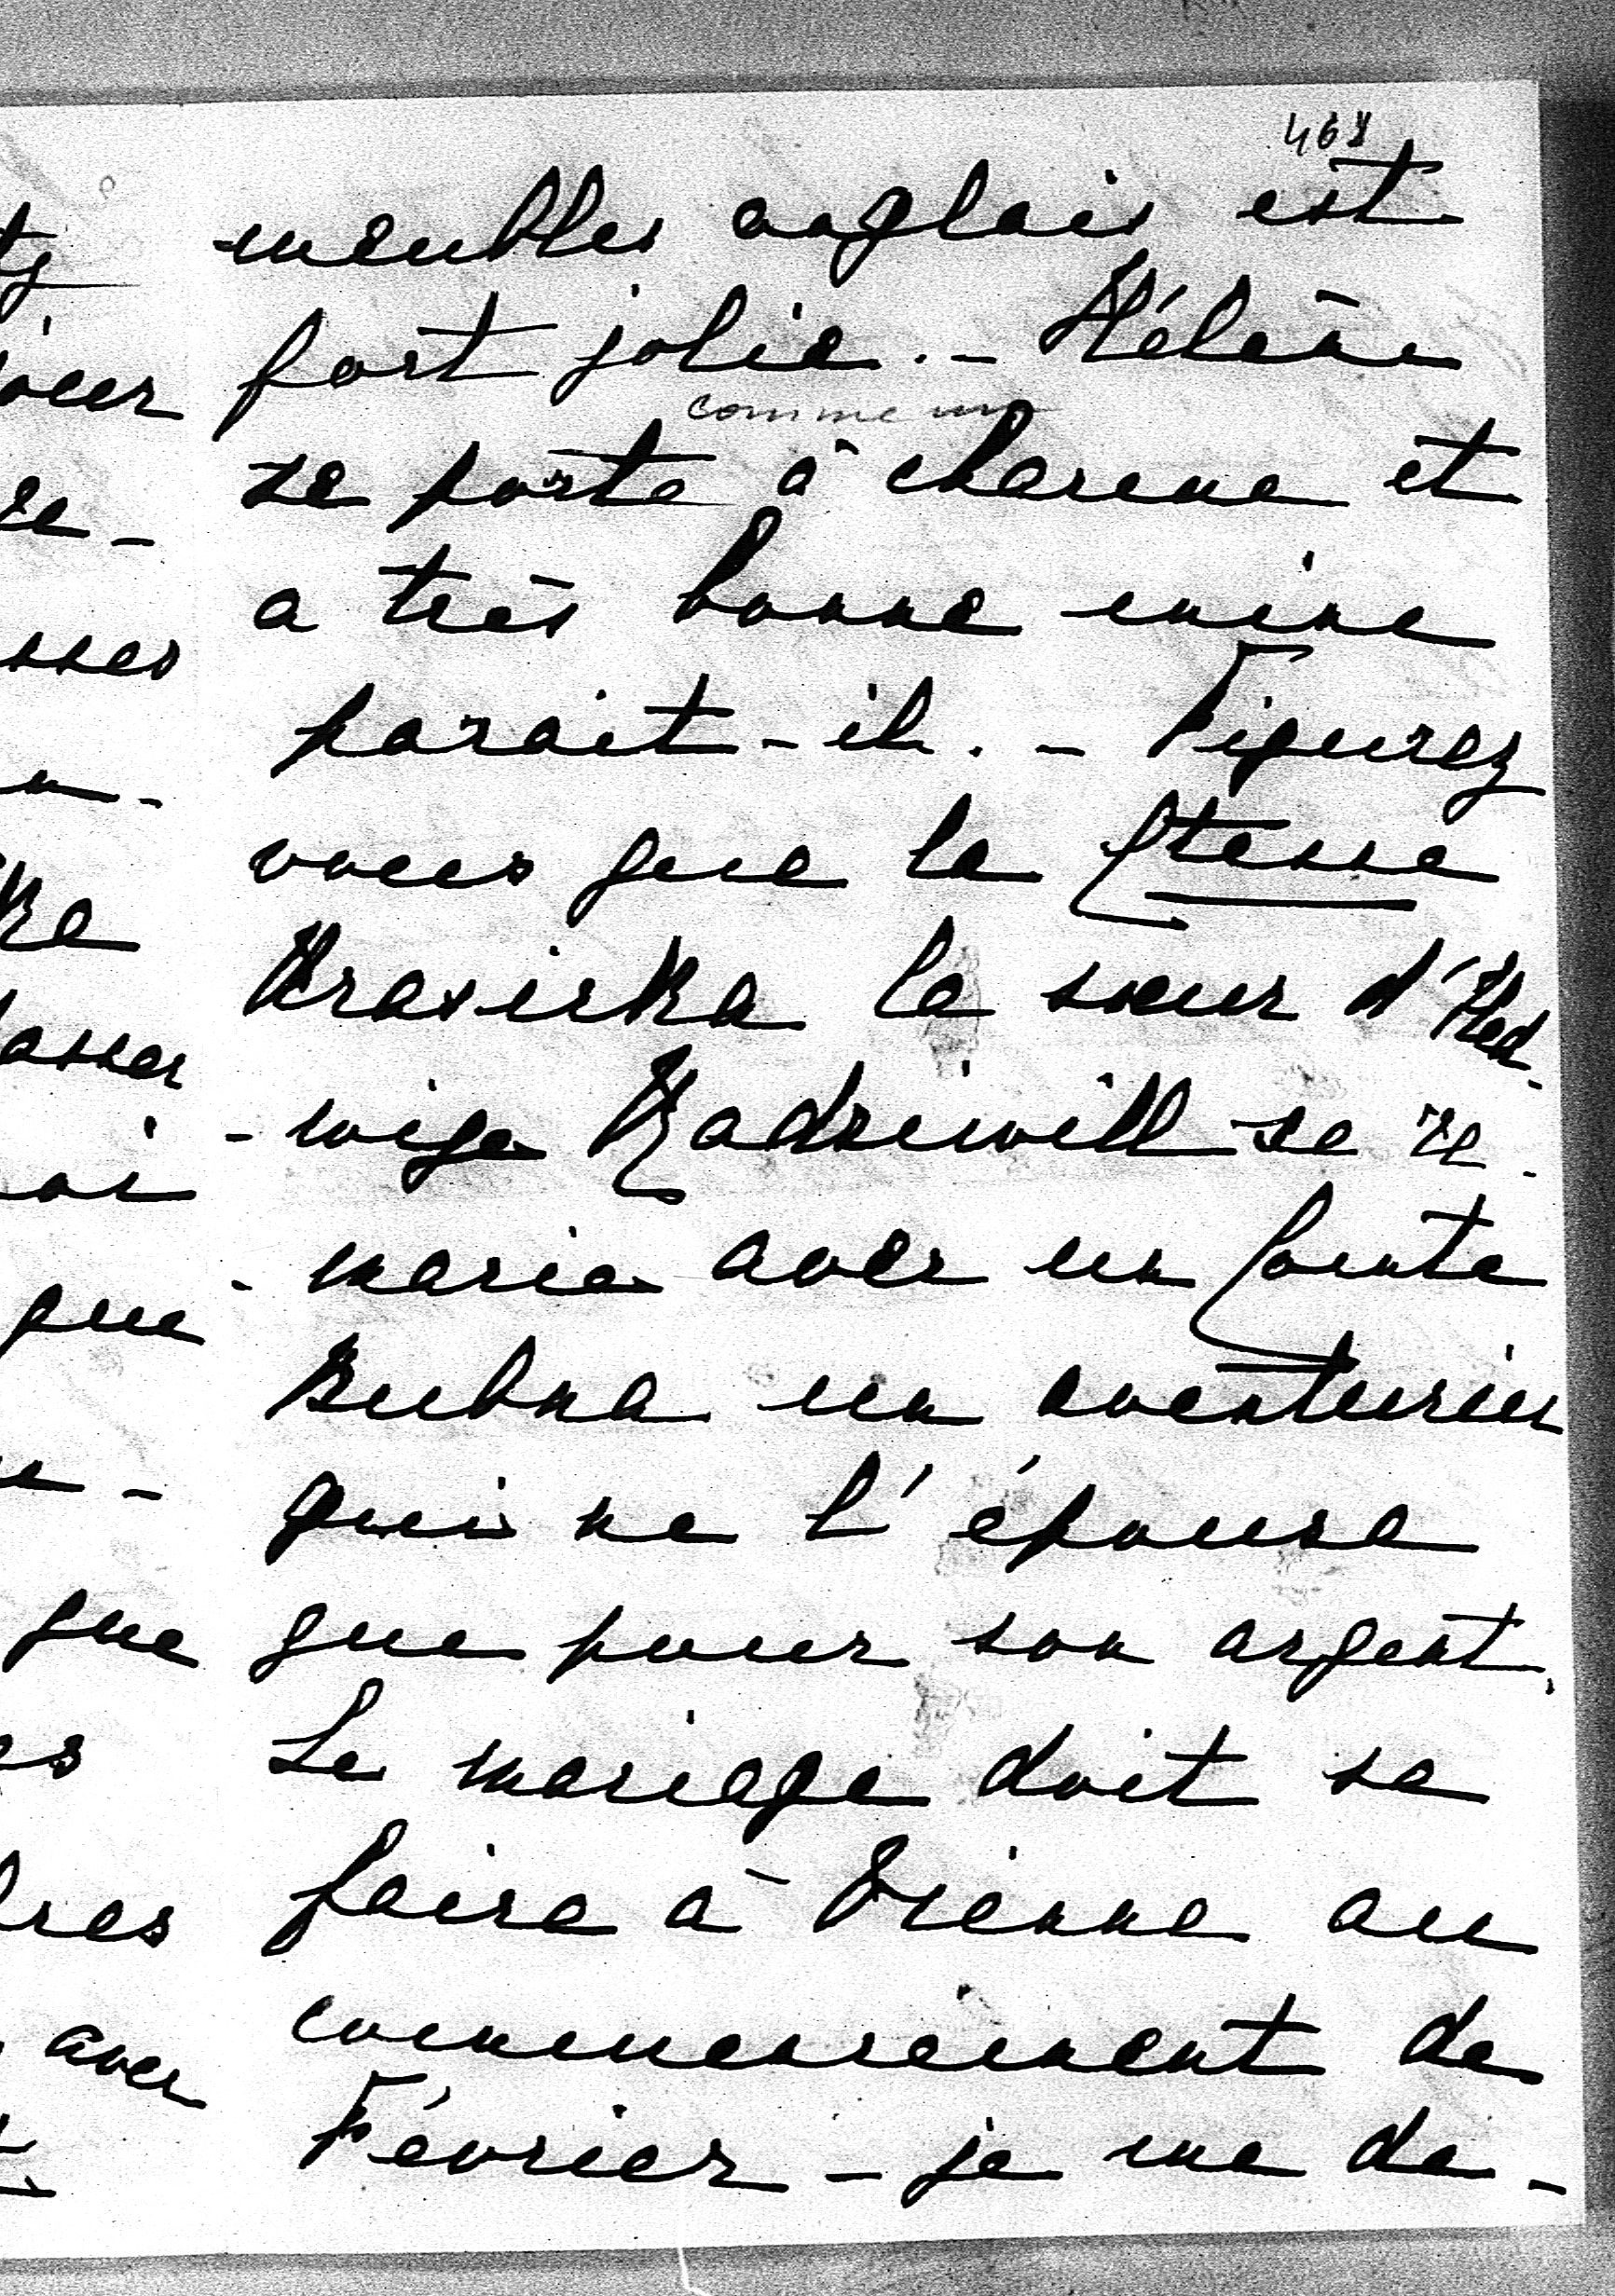 468
meubles anglais est
fort jolie. - Hélène
comme un
se porte à charme et
a très bonne mine
parait-il. - Figurez
vous que la Ctesse
Krasicka la sœur d'Hed-
-wige Radziwill se re-
-marie avec un Comte
Bubna un aventurier
qui ne l'épouse
que pour son argent.
Le mariage doit se
faire à Vienne au
commencement de
Février - je me de-